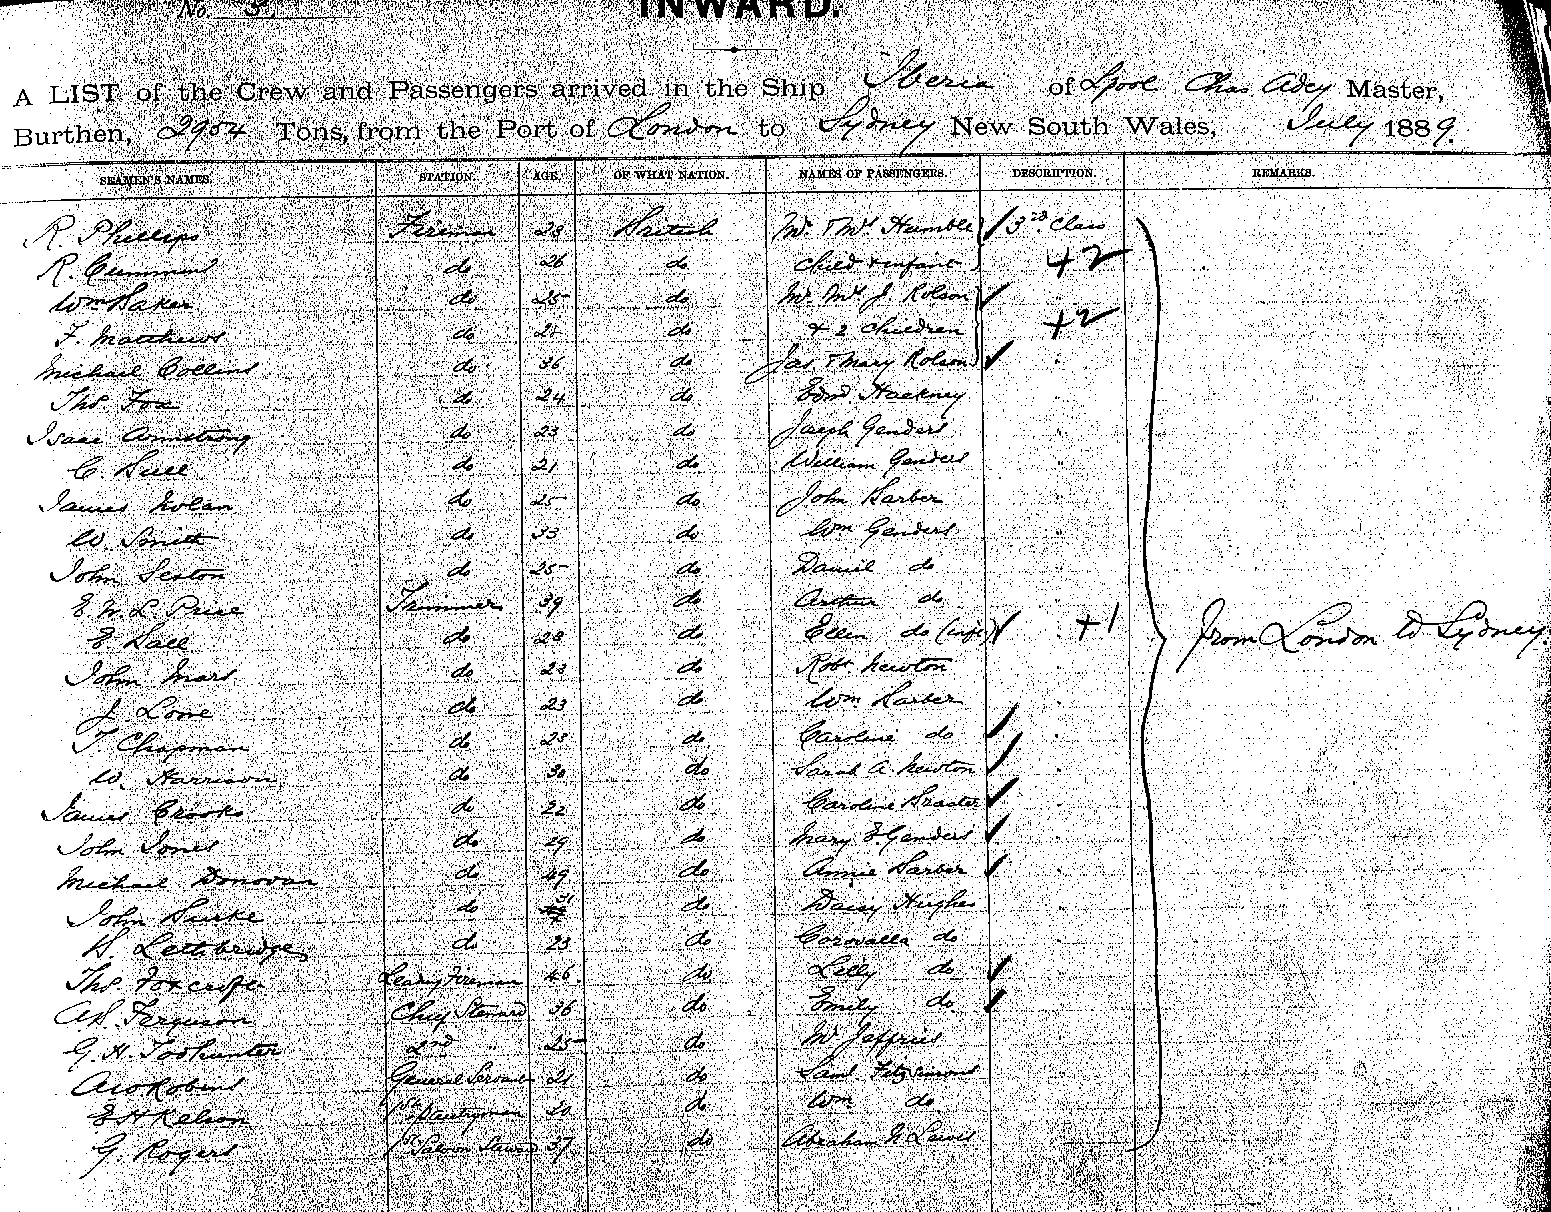 No. 3.
INWARD.
A LIST of the Crew and Passengers arrived in the Ship Iberia of Lpool Chas Adey Master,
Burthen, 2954 Tons, from the Port of London to Sydney New South Wales, July 1889.
SEAMEN'S NAMES. STATION. AGE. OF WHAT NATION. NAMES OF PASSENGERS. DESCRIPTION. REMARKS.
R. Phillips Fireman 28 British Mr. & Mrs Humble 3rd Class
R. Cummins do 26 do child & infant +2
Wm Baker do 25 do Mr. Mrs J. Rolson
F. Matthews do do & 2 children +2
Michael Collins do 36 do Jas & Mary Rolson
Thos. Fox do 24 do Edwd Hackney
Isaac Armstrong do 23 do Joseph Genders
C. do 21 do William Genders
James Nolan do 25 do John Barber
W. Smith do 33 do Wm Genders
John Sexton do 25 do Daniel do
E. W. L. Price Trimmer 39 do Arthur do
E. do 28 do Ellen do (wife) +1 From London to Sydney.
John Mars do 23 do Robt Newton
J. Lowe do 23 do Wm Barber
T. Chapman do 23 do Caroline do
W. Harrison do 30 do Sarah A. Newton
James Crooks do 22 do Caroline
John Jones do 29 do Mary F. Genders
Michael Donovan do 49 do Annie Barber
John Burke do do Daisy Hughes
H. Lethbridge do 23 do Corovalla do
Thos. Foxcroft Leading Fireman 46 do Lilly do
A.S. Ferguson Chief Steward 36 do Emily do
G. H. Toohunter 2nd " 25 do Mr Jeffries
General Servant 21 do Saml. Fitzsimons
E H Kelson 1st Pantryman 20 do Wm do
G. Rogers 1st Saloon Steward 37 do Abraham Lewis